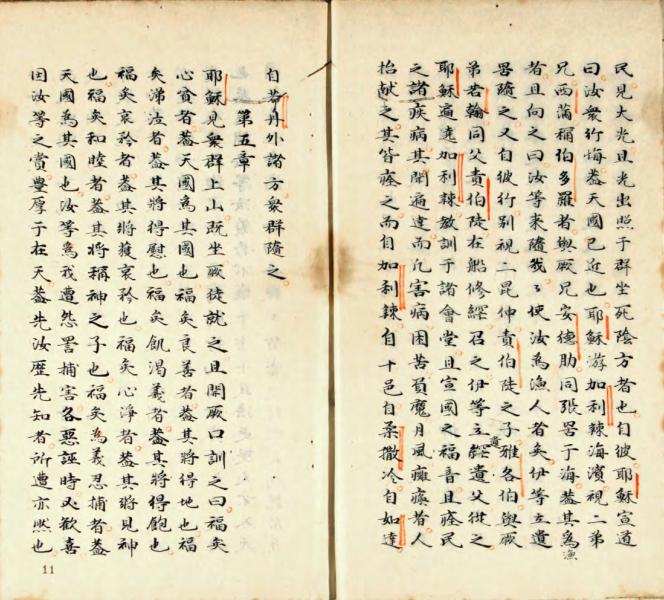 民見大光且光出照于群坐死陰方者也自彼耶穌宣道
曰汝衆行悔蓋天國已近也耶穌游加利辣海濱視二弟
兄西滿稱伯多羅者與厥兄安德肋同張罟于海蓋其為漁
者且向之曰汝等來隨我々使汝為漁人者矣伊等立遺
罟隨之又自彼行別視二昆仲責伯陡之子雅各伯與厥
弟若翰同父責伯陡在船修網召之伊等立遺網遺父從之
耶穌遍遶加利辣教訓于諸會堂且宣國之福音且痊民
之諸疾病其聞遍達而凡害病困苦負魔月風癱瘓者人
抬献之其皆痊之而自加利辣自十邑自柔撒冷自如達
自若丹外諸方衆群隨之
第五章
耶穌見衆群上山既坐厥徒就之且開厥口訓之曰福矣
心貧者蓋天國為其國也福矣良善者蓋其將得地也福
矣涕泣者蓋其將得慰也福矣飢渴義者蓋其將得飽也
福矣哀矜者蓋其將獲哀矜也福矣心淨者蓋其將見神
也福矣和睦者蓋其將稱神之子也福矣為義忍捕者蓋
天國為其國也汝等為我遭怨詈捕害各惡誣時又歡喜
因汝等之賞豐厚于在天蓋先汝歷先知者所遭亦然也
11